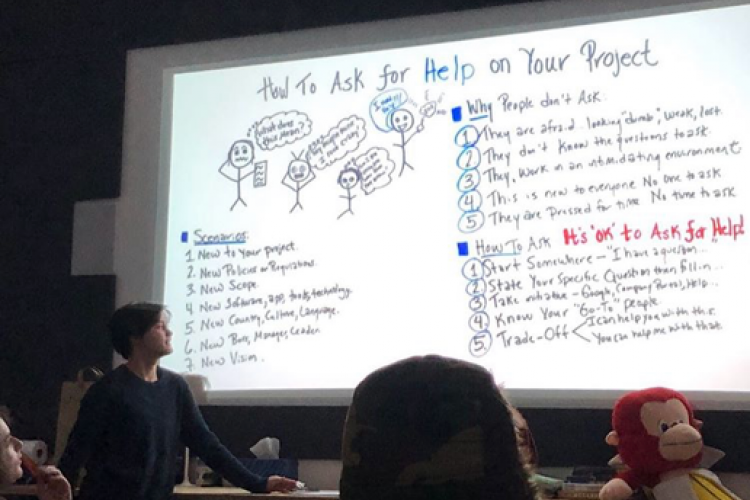 How To Ask for Help on Your Project
What does this mean?
Why People don't Ask:
1 They are afraid looking "dumb", weak, lost.
2 They don't know the questions to ask.
3 They work in an intimidating environment
4 This is new to everyone No one to ask
5 They are Pressed for time No time to ask
How To Ask It's "OK" to Ask for Help!
1 Start Somewhere - "I have a question...
2 State Your Specific Question then fill in...
3 Take initiative - Google, Company Portal, Help...
4. Know Your "Go-To" people
5. Trade-Off I can help you with this
You can help me with that
Scenarios
1. New to your project.
2. New Policies or Regulations.
3. New Scope.
4. New Software, app, tools, technology.
5. New Country, Culture, Language.
6. New Boss, Manager, Leader
7. New Vision.